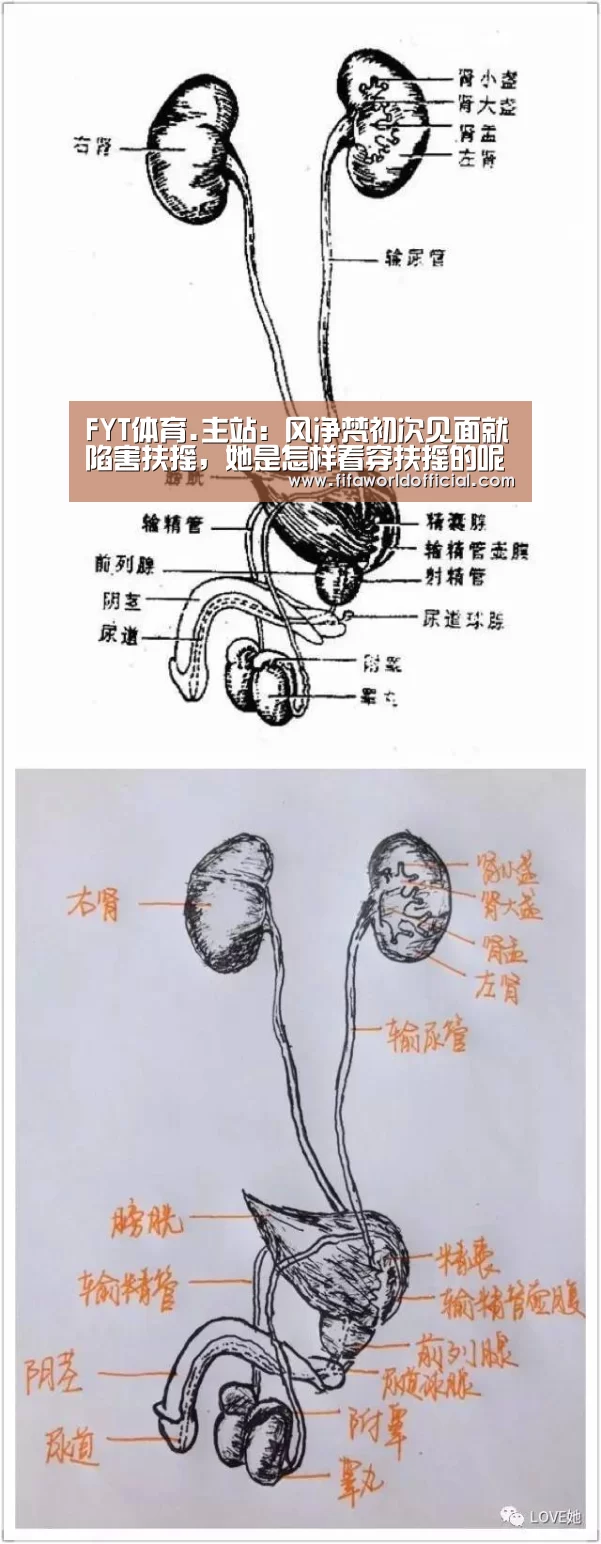 肾小盏
肾大盏
肾盂
右肾
左肾
输尿管
FYT体育.主站：风净梵初次见面就
陷害扶摇，她是怎样看穿扶摇的呢
www.fifaworldofficial.com
膀胱
输精管
精囊腺
输精管壶腹
前列腺
射精管
阴茎
尿道
尿道球腺
附睾
睾丸
肾小盏
右肾
肾大盏
肾盂
左肾
输尿管
膀胱
精囊
输精管
输精管壶腹
前列腺
阴茎
尿道球腺
附睾
尿道
睾丸
LOVE她